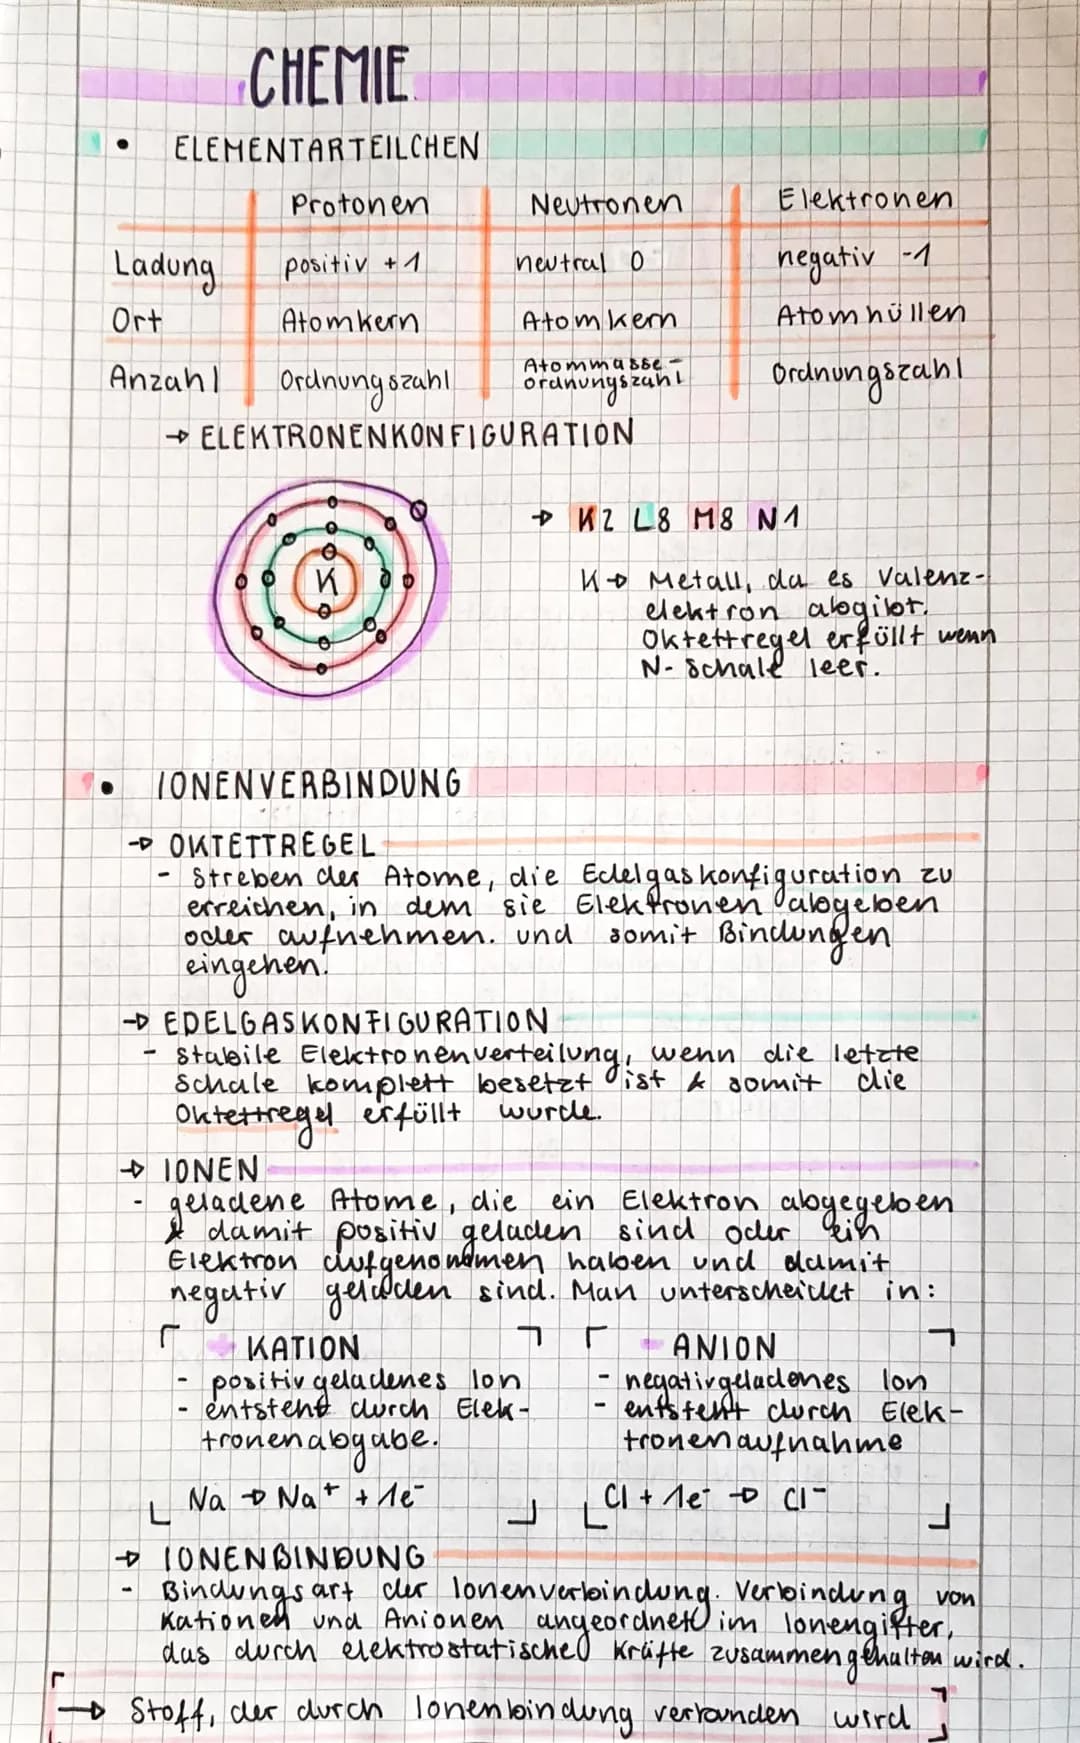 CHEMIE
• ELEMENTARTEILCHEN
Protonen Neutronen Elektronen
Ladung positiv +1 neutral 0 negativ -1
Ort Atomkern Atomkern Atomhüllen
Anzahl Ordnungszahl Atommasse- ordnungszahl Ordnungszahl
→ ELEKTRONENKONFIGURATION
→ K2 L8 M8 N1
K
K→ Metall, da es Valenz-
elektron abgibt.
Oktettregel erfüllt wenn
N-Schale leer.
• IONENVERBINDUNG
→ OKTETTREGEL
- Streben der Atome, die Edelgaskonfiguration zu
erreichen, in dem sie Elektronen abgeben
oder aufnehmen. und somit Bindungen
eingehen.
→ EDELGASKONFIGURATION
- stabile Elektronenverteilung, wenn die letzte
Schale komplett besetzt ist & somit die
Oktettregel erfüllt wurde.
→ IONEN
- geladene Atome, die ein Elektron abgegeben
& damit positiv geladen sind oder ein
Elektron aufgenommen haben und damit
negativ geladen sind. Man unterscheidet in:
+ KATION
- positiv geladenes Ion
- entsteht durch Elek-
tronenabgabe.
Na → Na⁺ + 1e⁻
- ANION
- negativgeladenes Ion
- entsteht durch Elek-
tronenaufnahme
Cl + 1e⁻ → Cl⁻
→ IONENBINDUNG
- Bindungsart der Ionenverbindung. Verbindung von
Kationen und Anionen angeordnet im Ionengitter,
das durch elektrostatische Kräfte zusammengehalten wird.
→ Stoff, der durch Ionenbindung verbunden wird